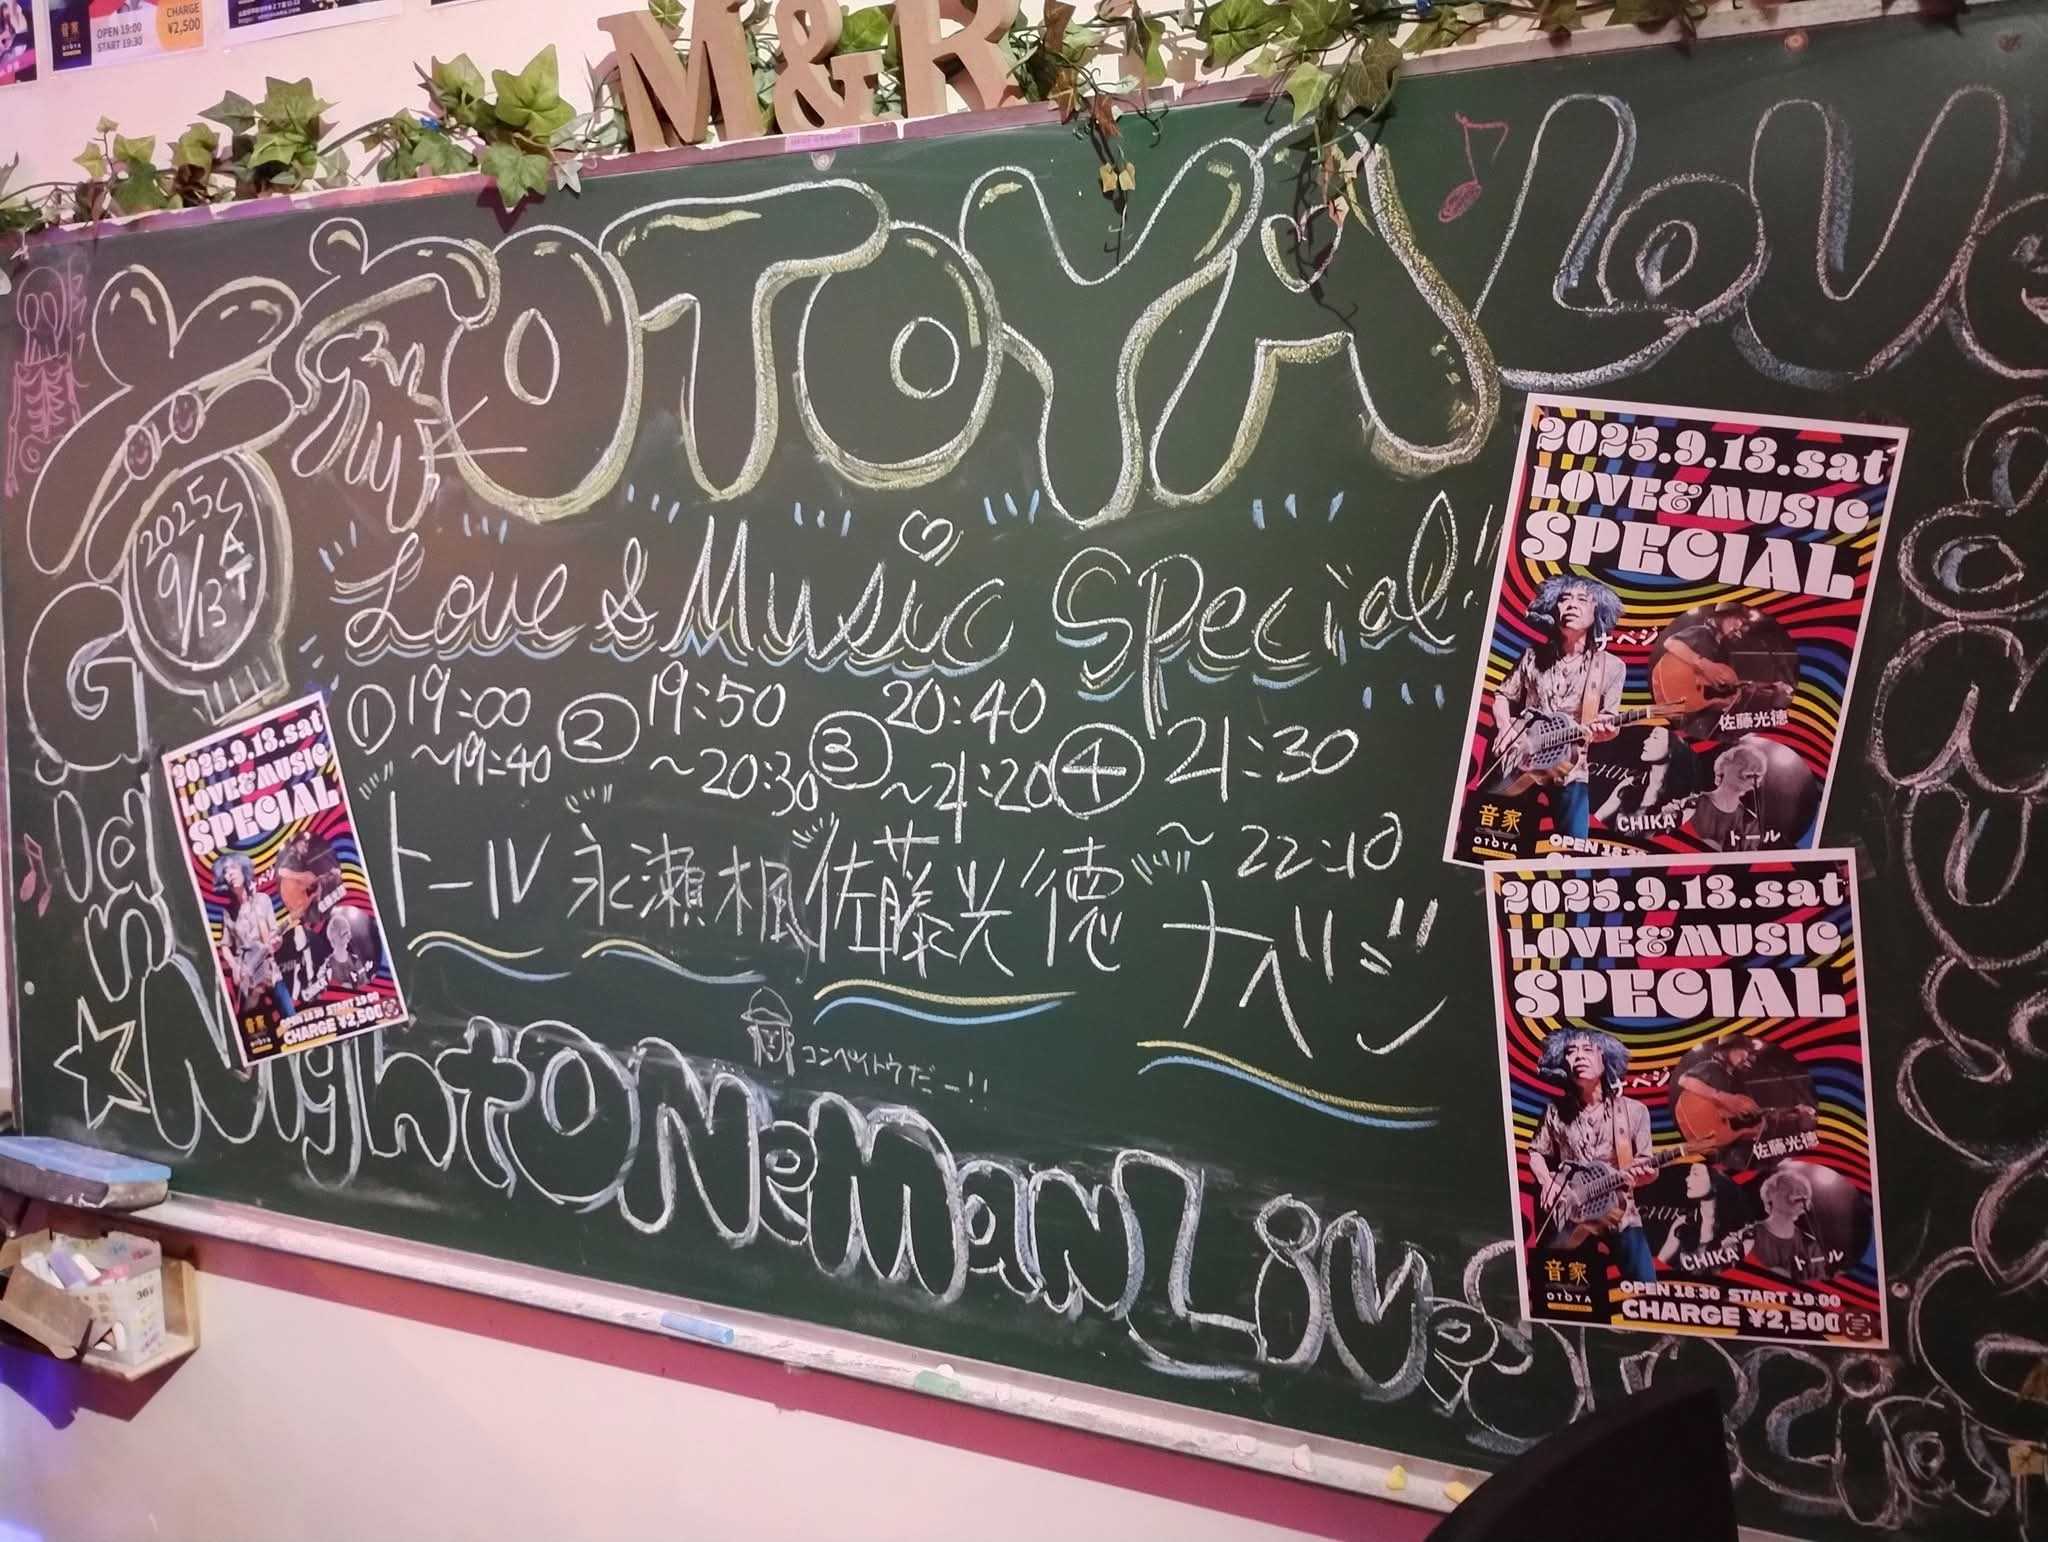 OPEN 19:00
START 19:30
CHARGE
¥2,500
音家
OTOYA
M&R
音家OTOYA
Love
2025
9/13
SAT
Love & Music Special!!
① 19:00
～19:40
トール
② 19:50
～20:30
永瀬楓
③ 20:40
～21:20
佐藤光徳
④ 21:30
～22:10
ナベジ
コンペイトウだー!!
Night One Man Live
2025.9.13.sat
LOVE&MUSIC
SPECIAL
ナベジ
佐藤光徳
CHIKA
トール
音家
OTOYA
OPEN 18:30
2025.9.13.sat
LOVE&MUSIC
SPECIAL
ナベジ
佐藤光徳
CHIKA
CHIKA
トール
音家
OTOYA
OPEN 18:30 START 19:00
CHARGE ¥2,500
2025.9.13.sat
LOVE&MUSIC
SPECIAL
ナベジ
CHIKA
トール
音家
OTOYA
OPEN 18:30 START 19:00
CHARGE ¥2,500